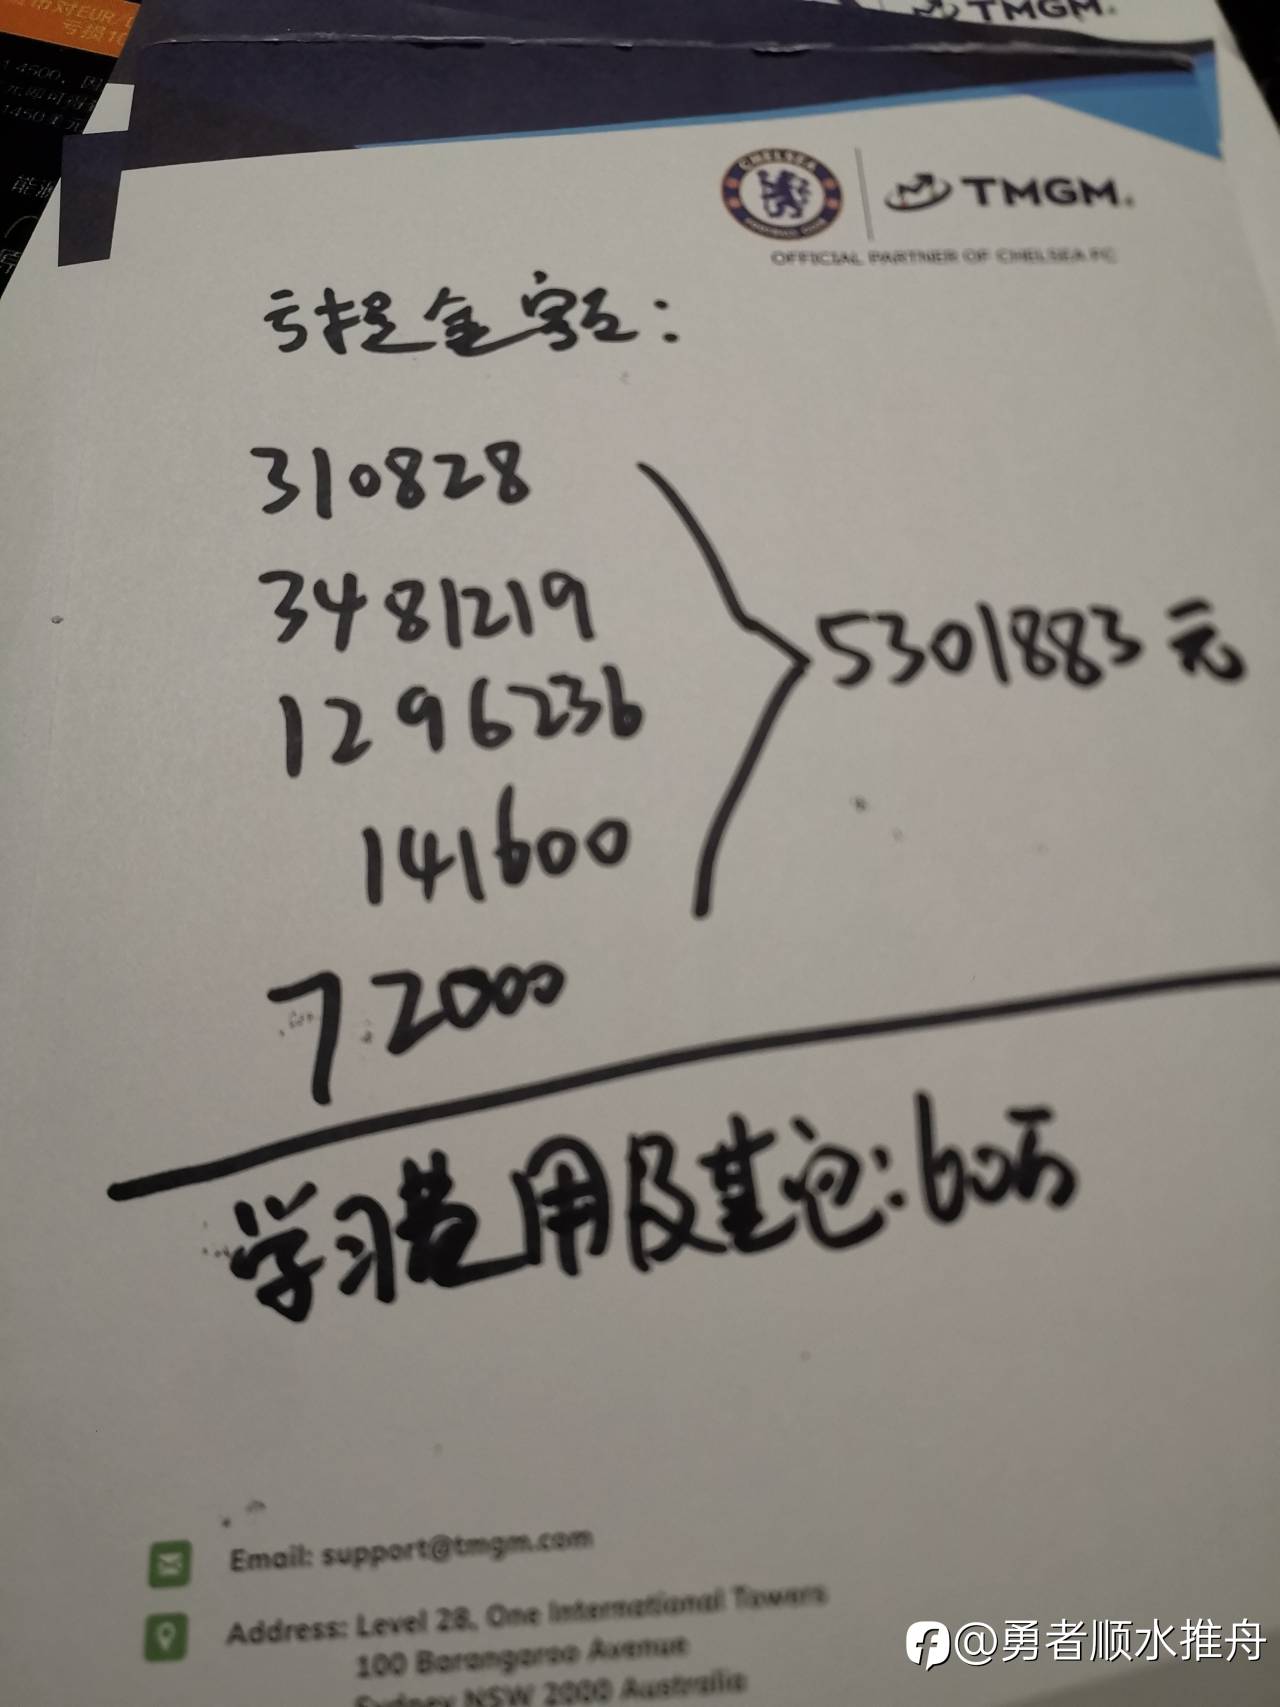 TMGM
CHELSEA
FOOTBALL CLUB
TMGM
OFFICIAL PARTNER OF CHELSEA FC
亏损金额：
310828
3481219
1296236
141600
72000
5301883元
学习费用及基仓：60万
Email: support@tmgm.com
Address: Level 28, One International Towers
100 Barangaroo Avenue
Sydney NSW 2000 Australia
@勇者顺水推舟